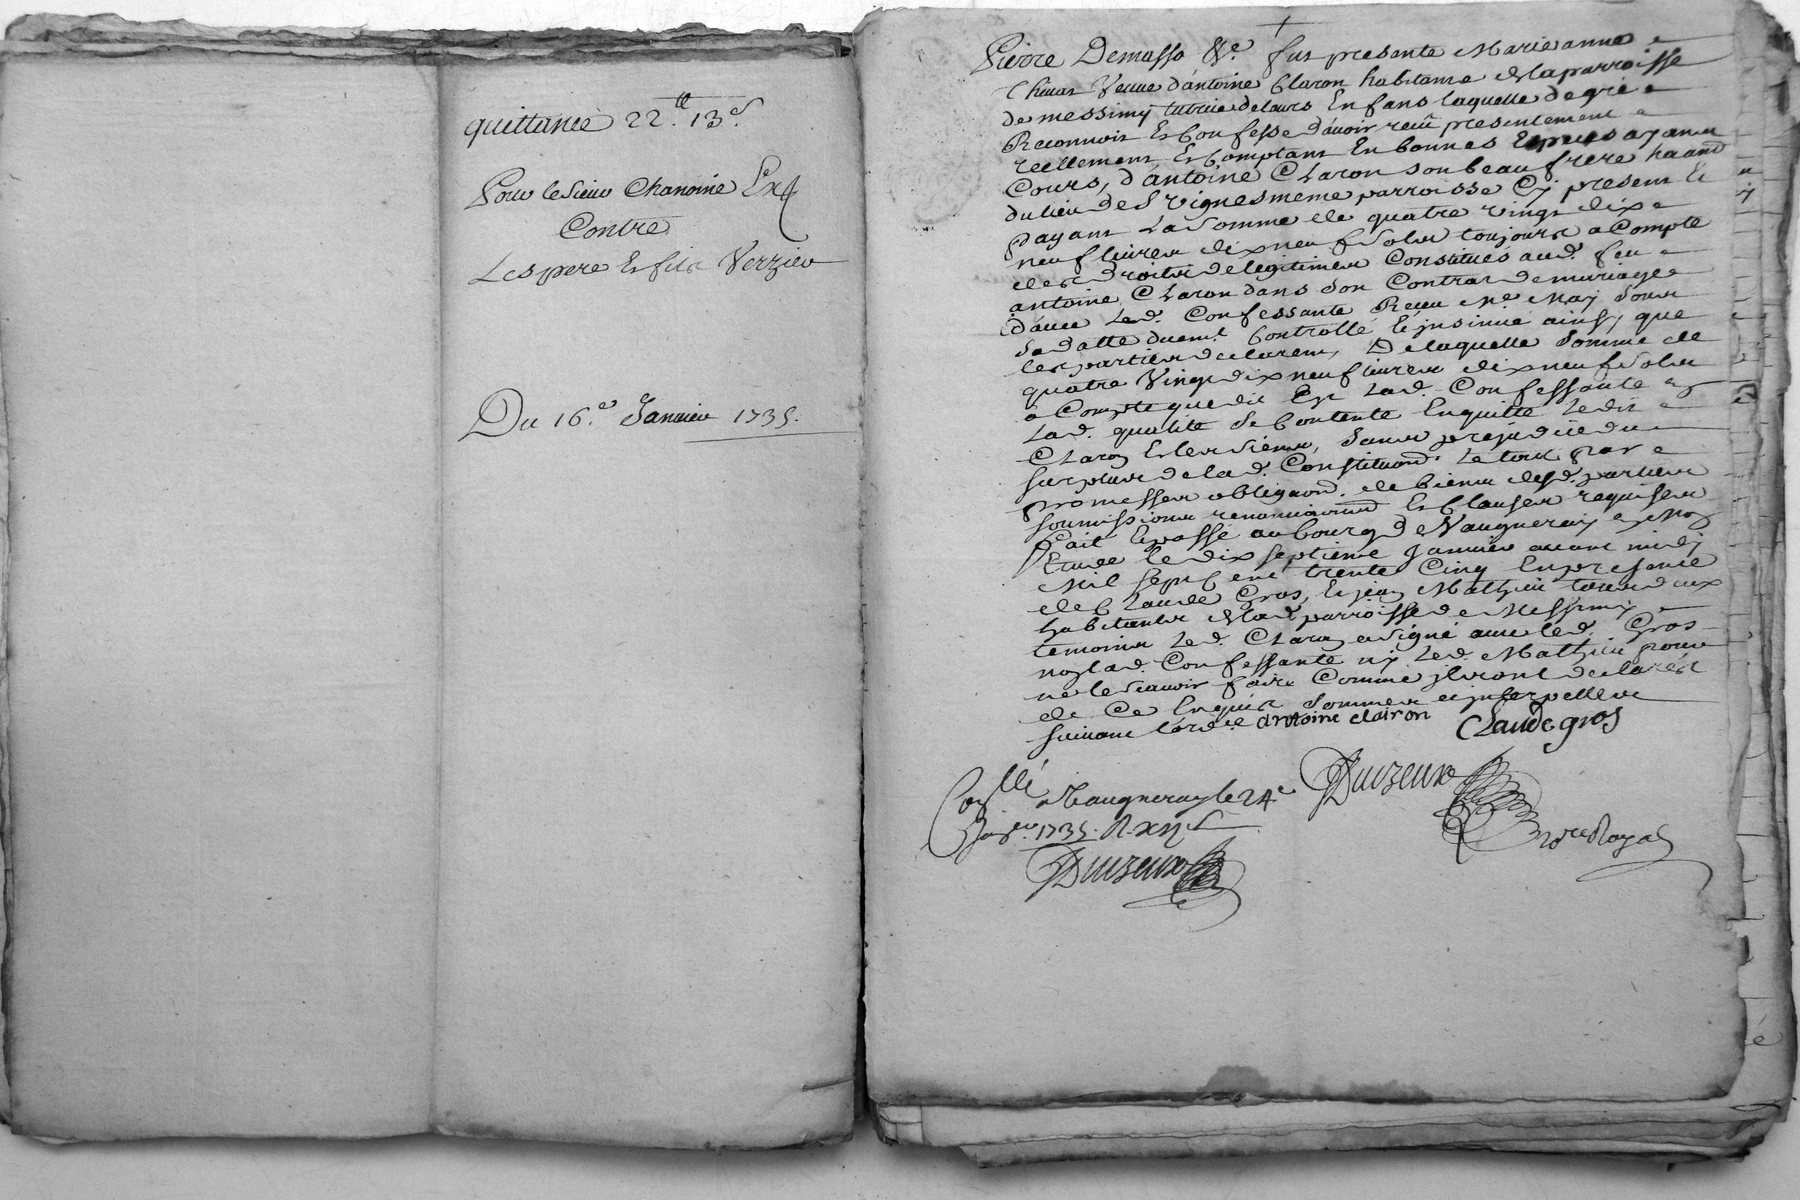 quittance 22.tt 13.s
Pour le Sieur Chanoine
Contre
Les pere Et fils Verzieu
Du 16.e Janvier 1735.
Pierre Demasso &.e fut presente Marieanne
Veuve d'antoine Claron habitante En la parroisse
de messimy tutrice de leurs Enfans laquelle de gré
Reconnoit Et Confesse d'avoir reçû presentement
reellement Et Comptant En bonnes Especes ayant
Cours, d'antoine Claron son beaufrere habant
du lieu des Vignes meme parroisse Cy present Et
payant La Somme de quatre vingt dix
neuf livres dix neuf Sols toujours a Compte
des droits de legitimes Constitués aud. feu
antoine Claron dans Son Contrat de mariage
d'avec Led. Confessante Recu Me. May Sous
Sa datte duem.t Controllé & jnsinué ainsy que
les parties declarent, De laquelle Somme de
quatre Vingt dix neuf livres dix neuf Sols
a Compte que dit Est Lad. Confessante en
Lad. qualité Se Contente En quitte Ledit
Claron Et les Siens, Sans prejudice du
Surplus de lad. Constituon. Le tout par
promesses obligaons. de biens desd. parties
Soumissions renonciaons Et Clauses requises
fait Et passé au bourg de Vaugneray en
Etude le dix Septieme Janvier avant midi
Mil Sept Cent trente Cinq En presence
de Claude Gros, Et jean Mathieu tous deux
habitants En lad. parroisse de Messimy
temoins Led. Claron a Signé avec led. Gros
non lad. Confessante ny Led. Mathieu pour
ne le Scavoir faire Comme jls ont declaré
de Ce Enquis Sommés et jnterpellés
Suivant l'ord.ce antoine clairon Claude gros
Con.llé a Vaugneray le 24e
Janv.er 1735. R. xij s
Duizeux
Duizeux
No.re Royal